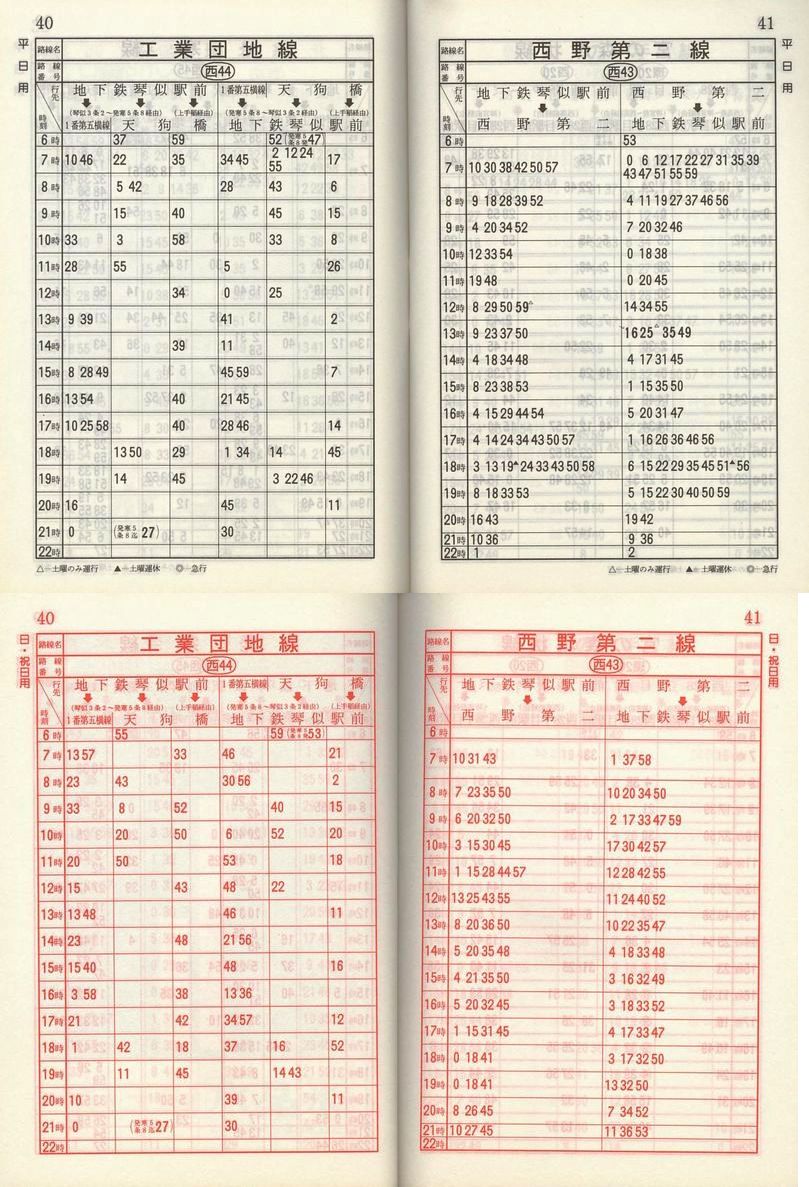 40
平日用
路線名 工業団地線
路線番号 西44
行先 地下鉄琴似駅前 1番第五横線 天狗橋
(琴似3条2~発寒5条8経由) (上手稲経由) (発寒5条8~琴似3条2経由) (上手稲経由)
時刻 1番第五横線 天狗橋 地下鉄琴似駅前
6時 37 59 52 (発寒5条8発47)
7時 10 46 22 35 34 45 2 12 24 55 17
8時 5 42 28 43 6
9時 15 40 45 38 15
10時 33 3 58 33 8
11時 28 55 5 26
12時 34 0 25
13時 9 39 41 2
14時 39 11
15時 8 28 49 45 59 7
16時 13 54 40 21 45
17時 10 25 58 40 28 46 14
18時 13 50 29 1 34 14 45
19時 14 45 3 22 46
20時 16 45 11
21時 0 (発寒5条8迄27) 30
22時
△―土曜のみ運行 ▲―土曜運休 ◎―急行
41
平日用
路線名 西野第二線
路線番号 西43
行先 地下鉄琴似駅前 西野第二
時刻 西野第二 地下鉄琴似駅前
6時 53
7時 10 30 38 42 50 57 0 6 12 17 22 27 31 35 39
43 47 51 55 59
8時 9 18 28 39 52 4 11 19 27 37 46 56
9時 4 20 34 52 7 20 32 46
10時 12 33 54 0 18 38
11時 19 48 0 20 45
12時 8 29 50 59△ 14 34 55
13時 9 23 37 50 16 25△ 35 49
14時 4 18 34 48 4 17 31 45
15時 8 23 38 53 1 15 35 50
16時 4 15 29 44 54 5 20 31 47
17時 4 14 24 34 43 50 57 1 16 26 36 46 56
18時 3 13 19▲ 24 33 43 50 58 6 15 22 29 35 45 51▲ 56
19時 8 18 33 53 5 15 22 30 40 50 59
20時 16 43 19 42
21時 10 36 9 36
22時 1 2
△―土曜のみ運行 ▲―土曜運休 ◎―急行
40
日・祝日用
路線名 工業団地線
路線番号 西44
行先 地下鉄琴似駅前 1番第五横線 天狗橋
(琴似3条2~発寒5条8経由) (上手稲経由) (発寒5条8~琴似3条2経由) (上手稲経由)
時刻 1番第五横線 天狗橋 地下鉄琴似駅前
6時 55 59 (発寒5条8発53)
7時 13 57 33 46 21
8時 23 43 30 56 2
9時 33 8 52 40 15
10時 20 50 6 52 20
11時 20 50 53 18
12時 15 43 48 22
13時 13 48 46 11
14時 23 48 21 56
15時 15 40 48 16
16時 3 58 38 13 36
17時 21 42 34 57 12
18時 1 42 18 37 16 52
19時 11 45 14 43
20時 10 39 11
21時 0 (発寒5条8迄27) 30
22時
41
日・祝日用
路線名 西野第二線
路線番号 西43
行先 地下鉄琴似駅前 西野第二
時刻 西野第二 地下鉄琴似駅前
6時
7時 10 31 43 1 37 58
8時 7 23 35 50 10 20 34 50
9時 6 20 32 50 2 17 33 47 59
10時 3 15 30 45 17 30 42 57
11時 1 15 28 44 57 12 28 42 55
12時 13 25 43 55 11 24 40 52
13時 8 20 36 50 10 22 35 47
14時 5 20 35 48 4 18 33 48
15時 4 21 35 50 3 16 32 49
16時 5 20 32 45 3 18 33 52
17時 1 15 31 45 4 17 33 47
18時 0 18 41 3 17 32 50
19時 0 18 41 13 32 50
20時 8 26 45 7 34 52
21時 10 27 45 11 36 53
22時